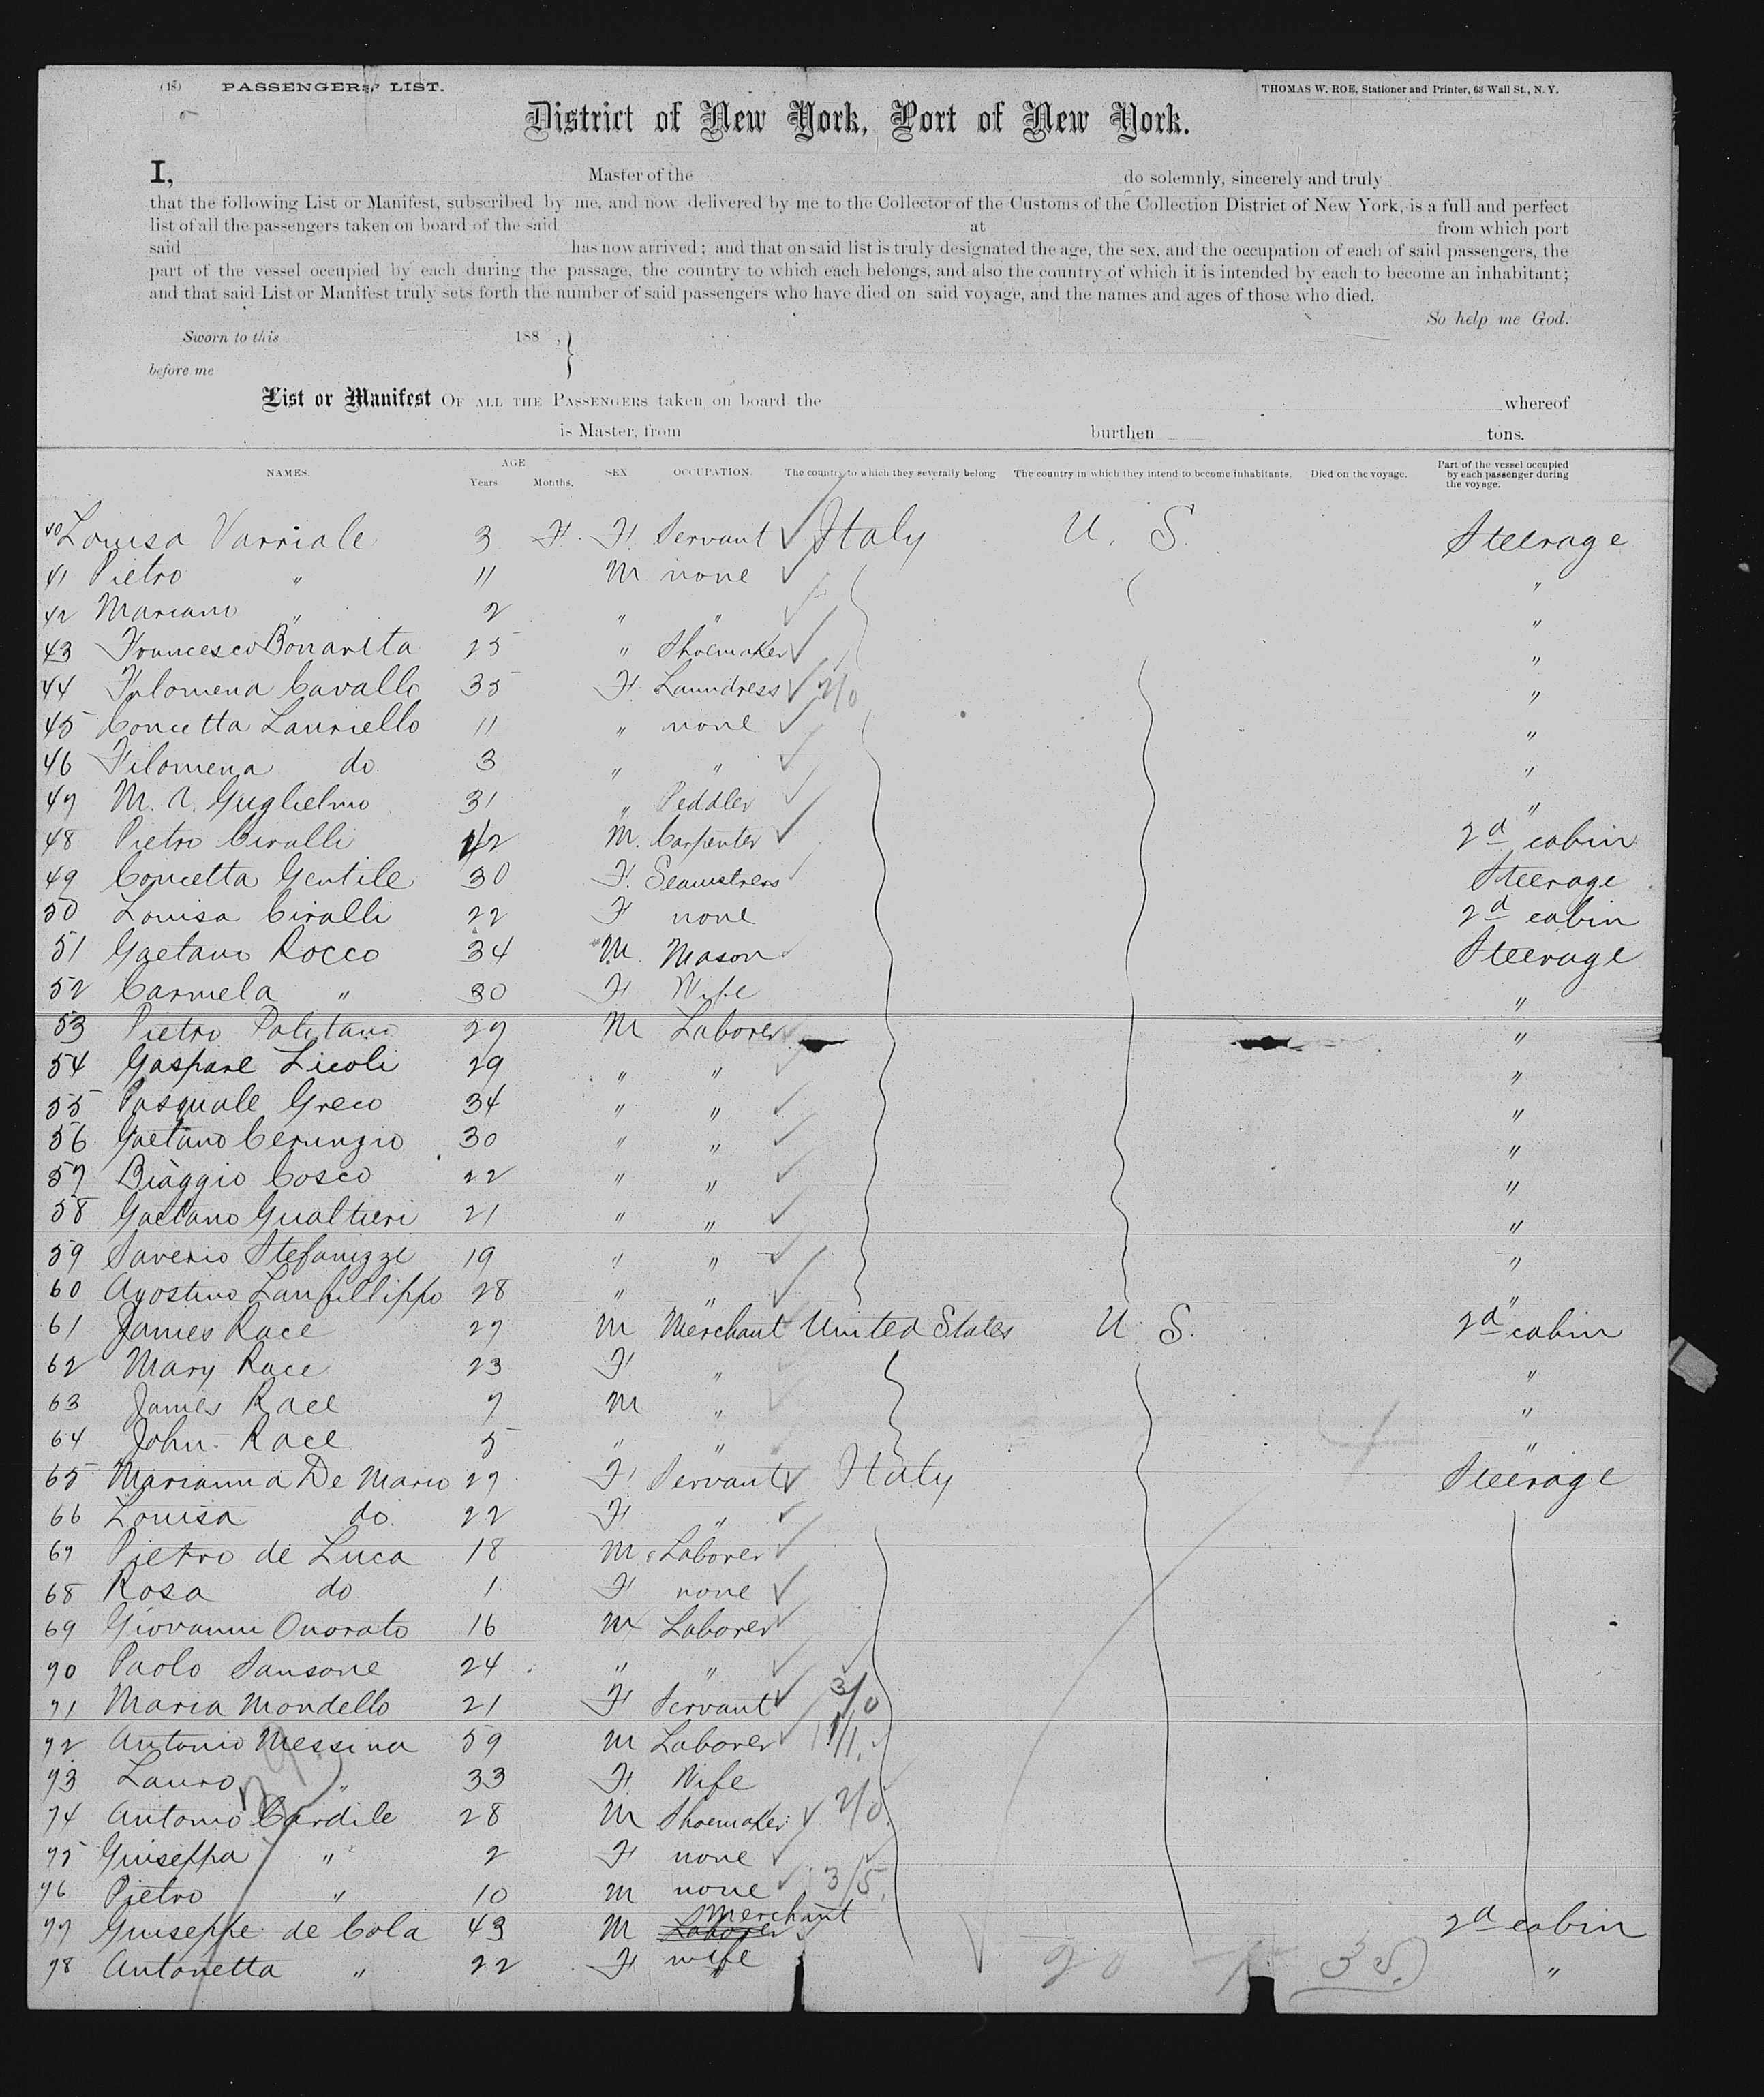 (18) PASSENGERS' LIST. THOMAS W. ROE, Stationer and Printer, 63 Wall St., N. Y.
District of New York, Port of New York.
I, Master of the do solemnly, sincerely and truly
that the following List or Manifest, subscribed by me, and now delivered by me to the Collector of the Customs of the Collection District of New York, is a full and perfect
list of all the passengers taken on board of the said at from which port
said has now arrived; and that on said list is truly designated the age, the sex, and the occupation of each of said passengers, the
part of the vessel occupied by each during the passage, the country to which each belongs, and also the country of which it is intended by each to become an inhabitant;
and that said List or Manifest truly sets forth the number of said passengers who have died on said voyage, and the names and ages of those who died.
So help me God.
Sworn to this 188 , }
before me
List or Manifest OF ALL THE PASSENGERS taken on board the whereof
is Master, from burthen tons.
NAMES. AGE Years Months. SEX OCCUPATION. The country to which they severally belong The country in which they intend to become inhabitants. Died on the voyage. Part of the vessel occupied by each passenger during the voyage.
40 Louisa Varriale 3 F. F. Servant Italy U. S. Steerage
41 Pietro " 11 M none "
42 Mariano " 2 " " "
43 Francesco Bonavita 25 " Shoemaker "
44 Filomena Cavallo 35 F. Laundress 2/0 "
45 Concetta Lauriello 11 " none "
46 Filomena do 3 " " "
47 M. V. Guglielmo 31 " Peddler "
48 Pietro Ciralli 42 M. Carpenter 2d cabin
49 Concetta Gentile 30 F. Seamstress Steerage
50 Louisa Ciralli 22 F none 2d cabin
51 Gaetano Rocco 34 M. Mason Steerage
52 Carmela " 30 F Wife "
53 Pietro Politano 27 M Laborer "
54 Gaspare Licoli 29 " " "
55 Pasquale Greco 34 " " "
56 Gaetano Cerunzio 30 " " "
57 Biaggio Cosco 22 " " "
58 Gaetano Gualtieri 21 " " "
59 Saverio Stefanizzi 19 " " "
60 Agostino Lanfillippo 28 " " "
61 James Race 27 M Merchant United States U. S. 2d cabin
62 Mary Race 23 F " "
63 James Race 7 M " "
64 John. Race 5 " " "
65 Marianna De Mario 27 F Servant Italy Steerage
66 Louisa do. 22 F "
67 Pietro de Luca 18 M Laborer
68 Rosa do 1 F none
69 Giovanni Onorato 16 M Laborer
70 Paolo Sansone 24 " "
71 Maria Mondello 21 F Servant 3/0
72 Antonio Messina 59 M Laborer 1/1.
73 Lauro " 33 F Wife
74 Antonio Cardile 28 M Shoemaker 2/0.
75 Giuseppa " 2 F none
76 Pietro " 10 M none 3/5.
77 Giuseppe de Cola 43 M Laborer Merchant 2d cabin
78 Antonetta " 22 F wife "
20